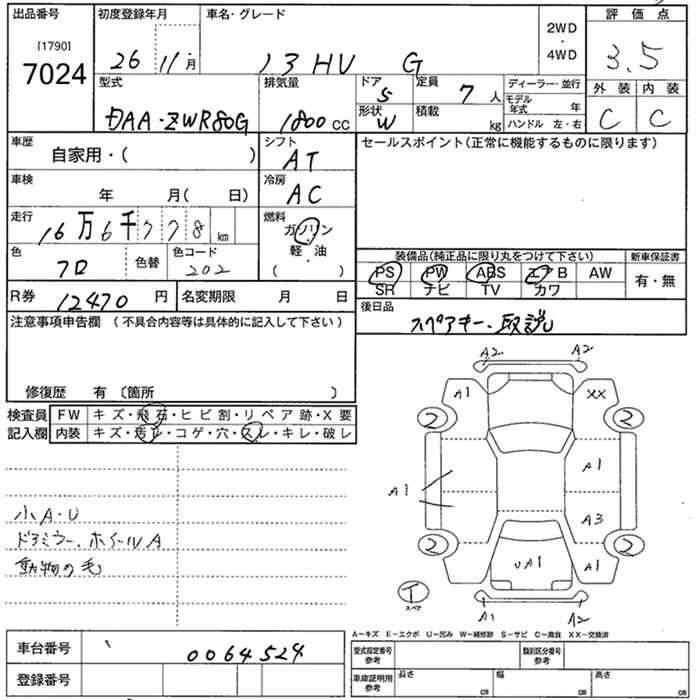 出品番号 初度登録年月 車名・グレード 2WD・4WD 評価点
[1790] 7024 26 11月 13 HV G 3.5
型式 排気量 ドア 5 定員 7人 ディーラー・並行 外装 内装
DAA-ZWR80G 1800cc 形状 W 積載 kg モデル年式 年 ハンドル 左・右 C C
車歴 自家用・( ) シフト AT セールスポイント(正常に機能するものに限ります)
車検 年 月( 日) 冷房 AC
走行 16万6千778km 燃料 ガソリン・軽・油 ( )
色 クロ 色替 色コード 202 装備品(純正品に限り丸をつけて下さい) 新車保証書
PS PW ABS エアB AW 有・無
SR ナビ TV カワ
R券 12470円 名変期限 月 日 後日品 スペアキー・取説
注意事項申告欄 (不具合内容等は具体的に記入して下さい)
修復歴 有 〔箇所 〕
検査員記入欄 FW キズ・飛石・ヒビ割・リペア跡・X要
内装 キズ・汚レ・コゲ・穴・スレ・キレ・破レ
小A・U
ドアミラー、ホイールA
動物の毛
A2 A2
A1 XX
2 2
A1
A1
A3
2 2
UA1 A1
T スペア
A1 A2
A-キズ E-エクボ U-凹み W-補修跡 S-サビ C-腐食 XX-交換済
車台番号 0064524 型式指定番号 参考 類別区分番号 参考
登録番号 車庫証明用 参考 長さ cm 幅 cm 高さ cm